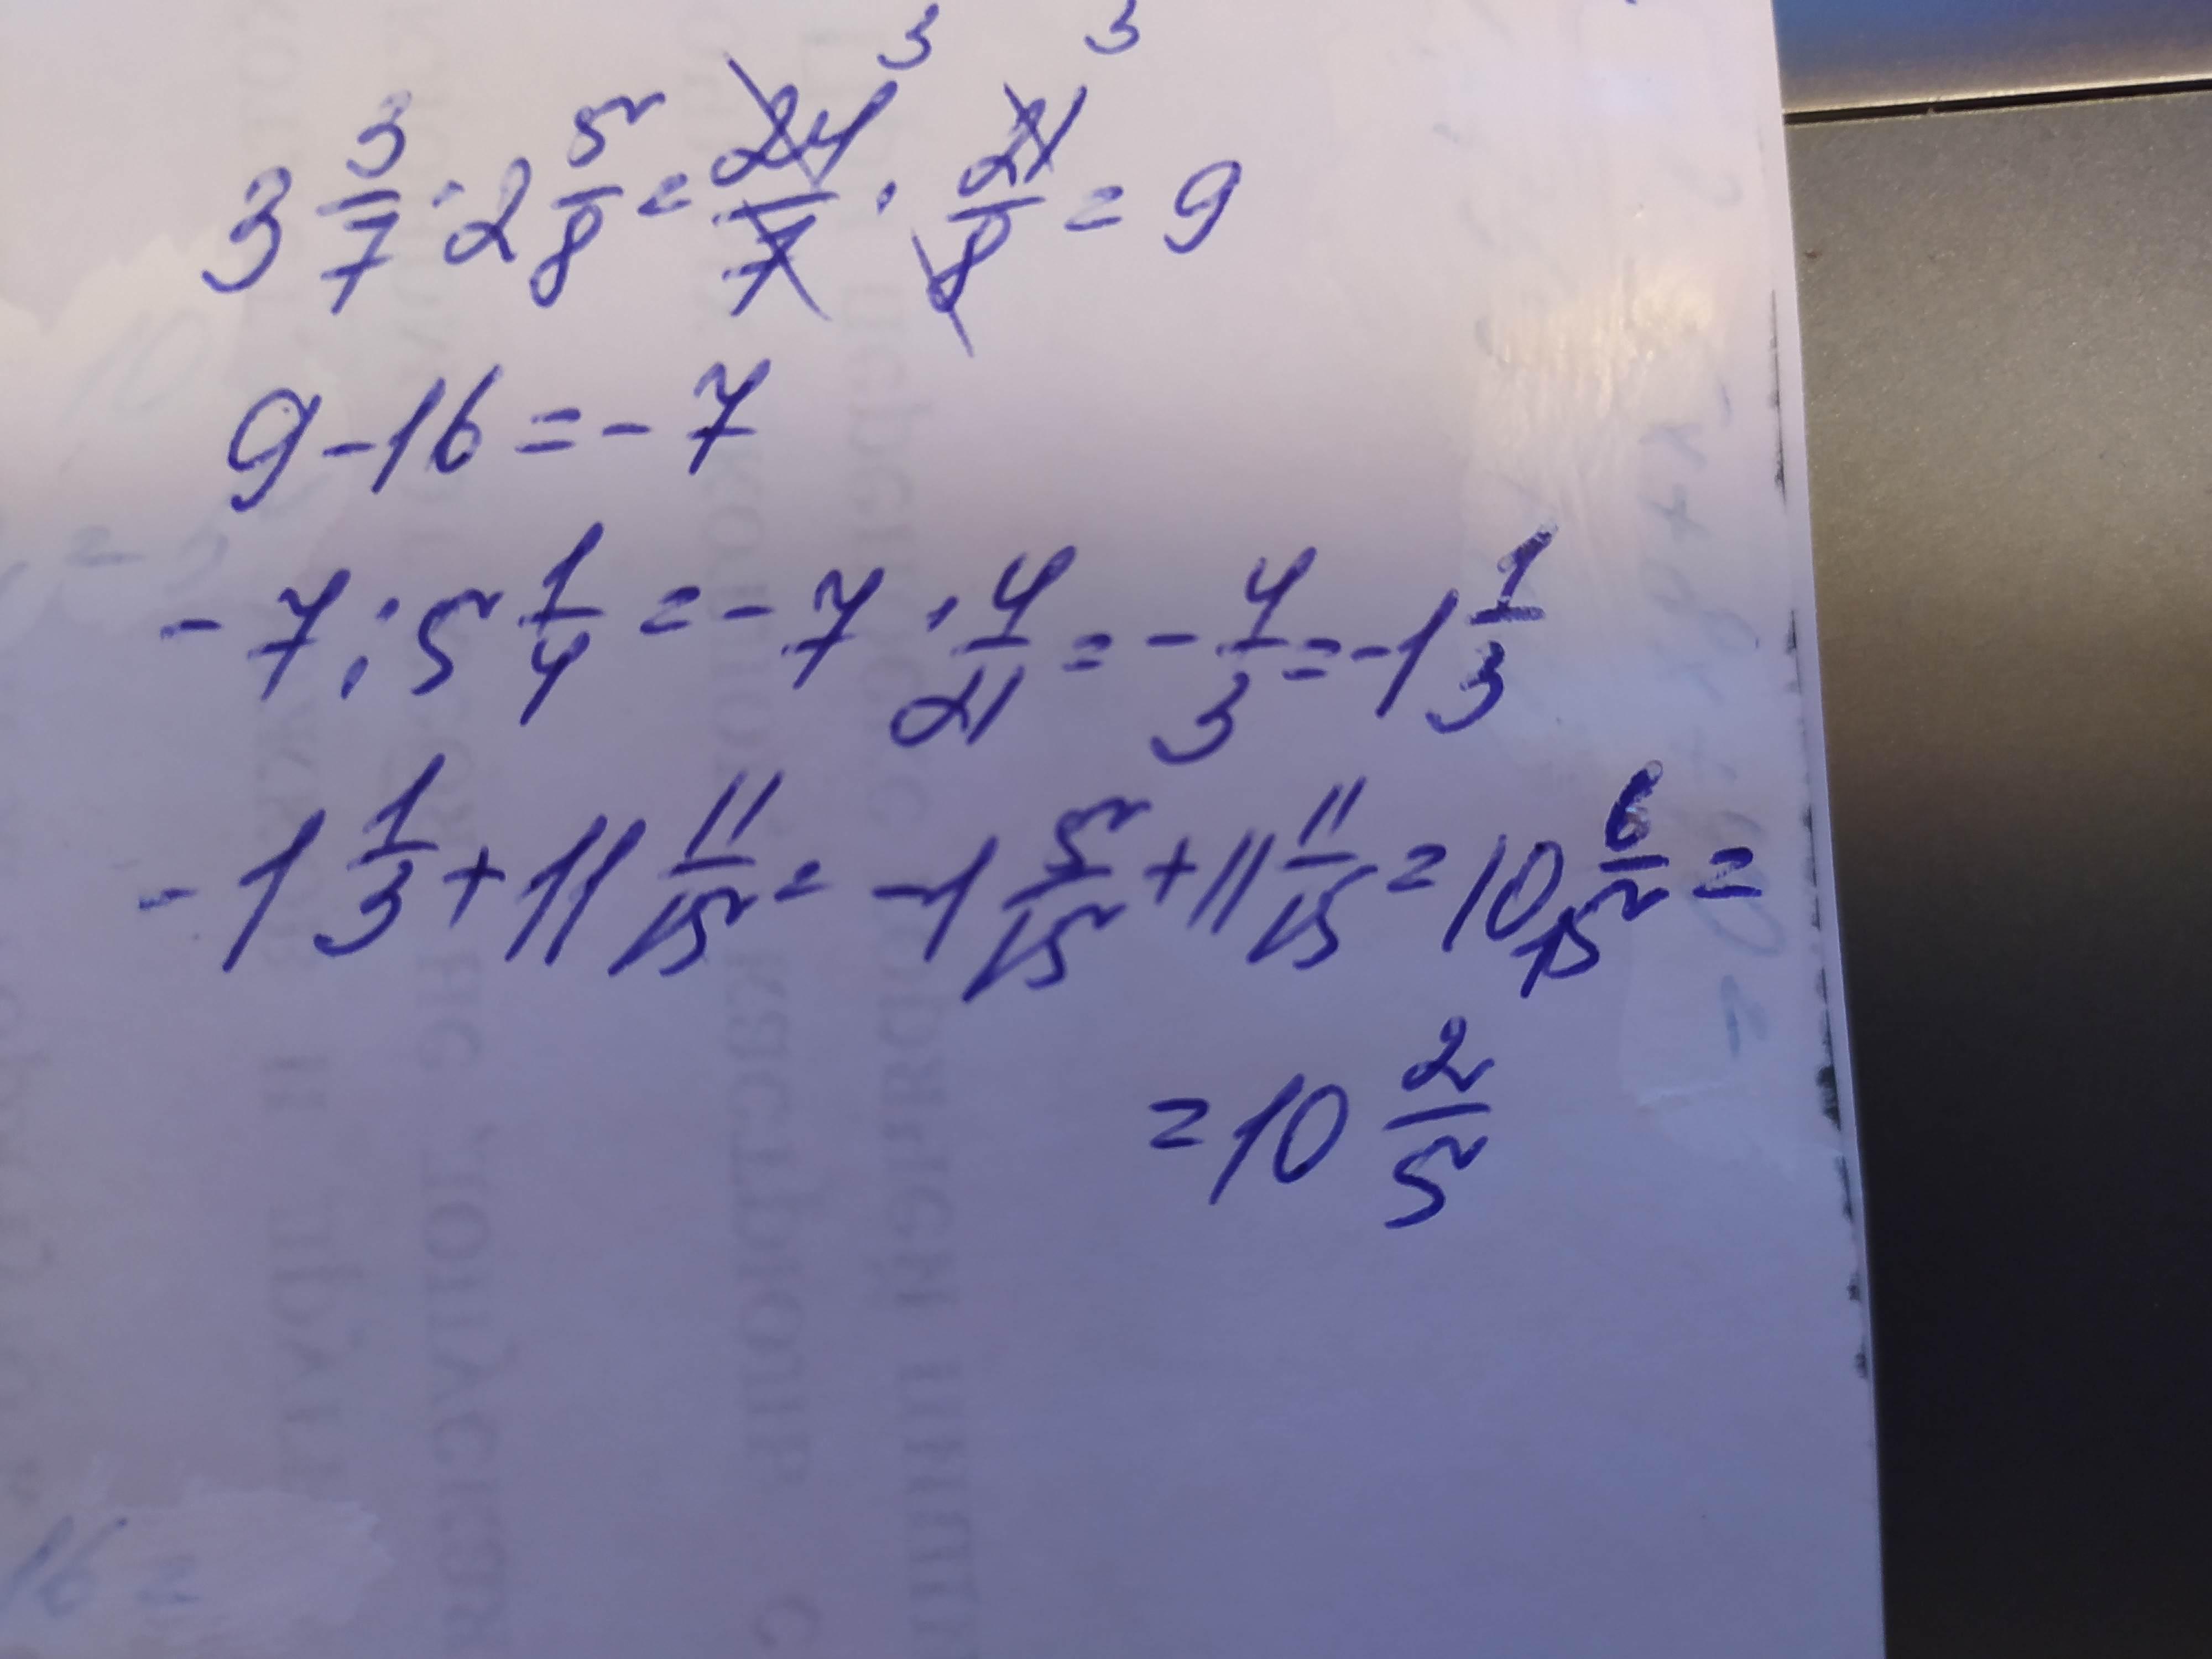 3 3/7 · 2 5/8 = 24/7 3 · 21/8 3 = 9
9 - 16 = - 7
- 7 : 5 1/4 = - 7 · 4/21 = - 4/3 = - 1 1/3
- 1 1/3 + 11 11/15 = - 1 5/15 + 11 11/15 = 10 6/15 =
= 10 2/5
16 =